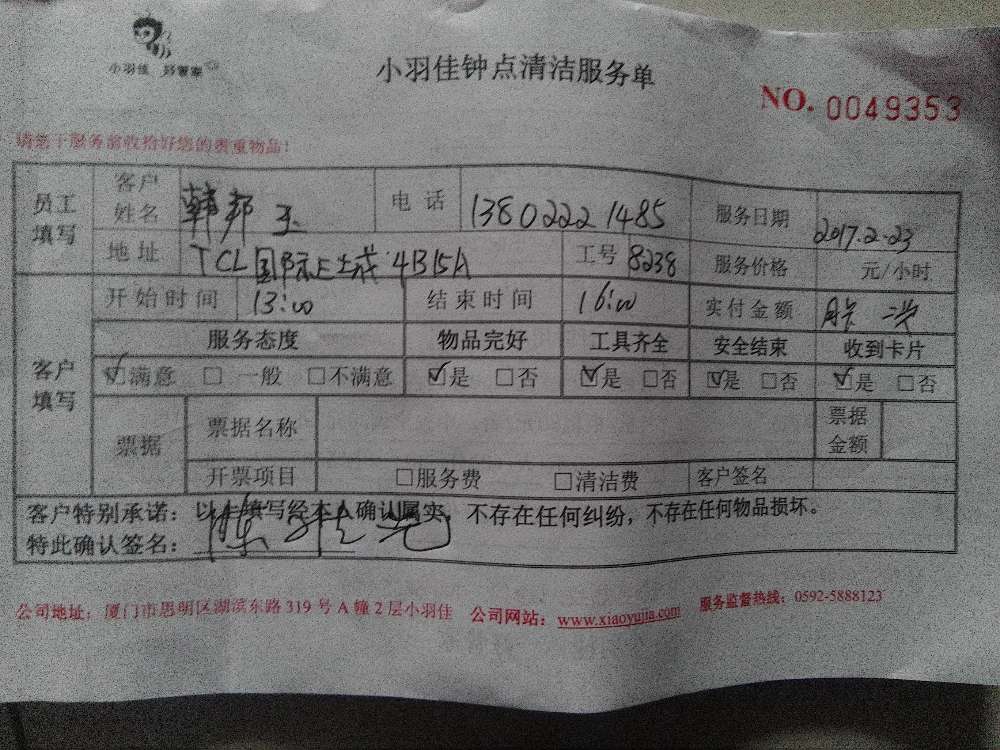 小羽佳 好管家
小羽佳钟点清洁服务单
NO. 0049353
请您于服务前收拾好您的贵重物品!
员工填写 客户姓名 韩邦玉 电话 13802221485 服务日期 2017.2.23
地址 TCL国际E城4B15A 工号 8238 服务价格 元/小时
客户填写 开始时间 13:00 结束时间 16:00 实付金额
服务态度 物品完好 工具齐全 安全结束 收到卡片
☑满意 □一般 □不满意 ☑是 □否 ☑是 □否 ☑是 □否 ☑是 □否
票据 票据名称 票据金额
开票项目 □服务费 □清洁费 客户签名
客户特别承诺:以上填写经本人确认属实,不存在任何纠纷,不存在任何物品损坏。
特此确认签名:
公司地址:厦门市思明区湖滨东路319号A幢2层小羽佳 公司网站:www.xiaoyujia.com 服务监督热线:0592-5888123